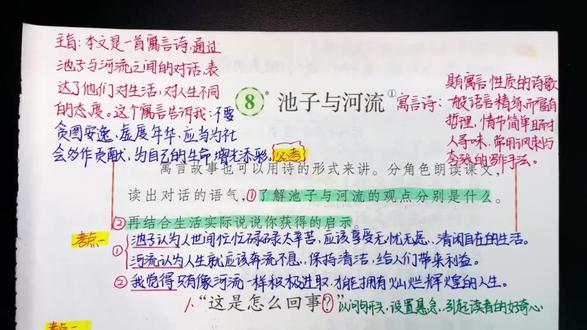 主旨:本文是一首寓言诗,通过
池子与河流之间的对话,表
达了他们对生活,对人生不同
的态度。这个寓言告诉我:不要
贪图安逸,虚度年华,应当为社
会多作贡献,为自己的生命增光添彩。必考
8* 池子与河流①
寓言诗:
具有寓言性质的诗歌
一般语言精炼而富有
哲理,情节简单且耐
人寻味,常用讽刺与
夸张的写作手法。
寓言故事也可以用诗的形式来讲。分角色朗读课文,
读出对话的语气,①了解池子与河流的观点分别是什么。
②再结合生活实际说说你获得的启示。
考点一
①池子认为人世间忙忙碌碌太辛苦,应该享受无忧无虑、清闲自在的生活。
河流认为人生就应该奔流不息,保持清洁,给人们带来利益。
②我觉得只有像河流一样积极进取,才能拥有灿烂辉煌的人生。
1.“这是怎么回事?
①以问句开头,设置悬念,引起读者的好奇心
考点一